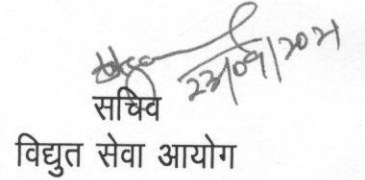 23/09/2021
सचिव
विद्युत सेवा आयोग